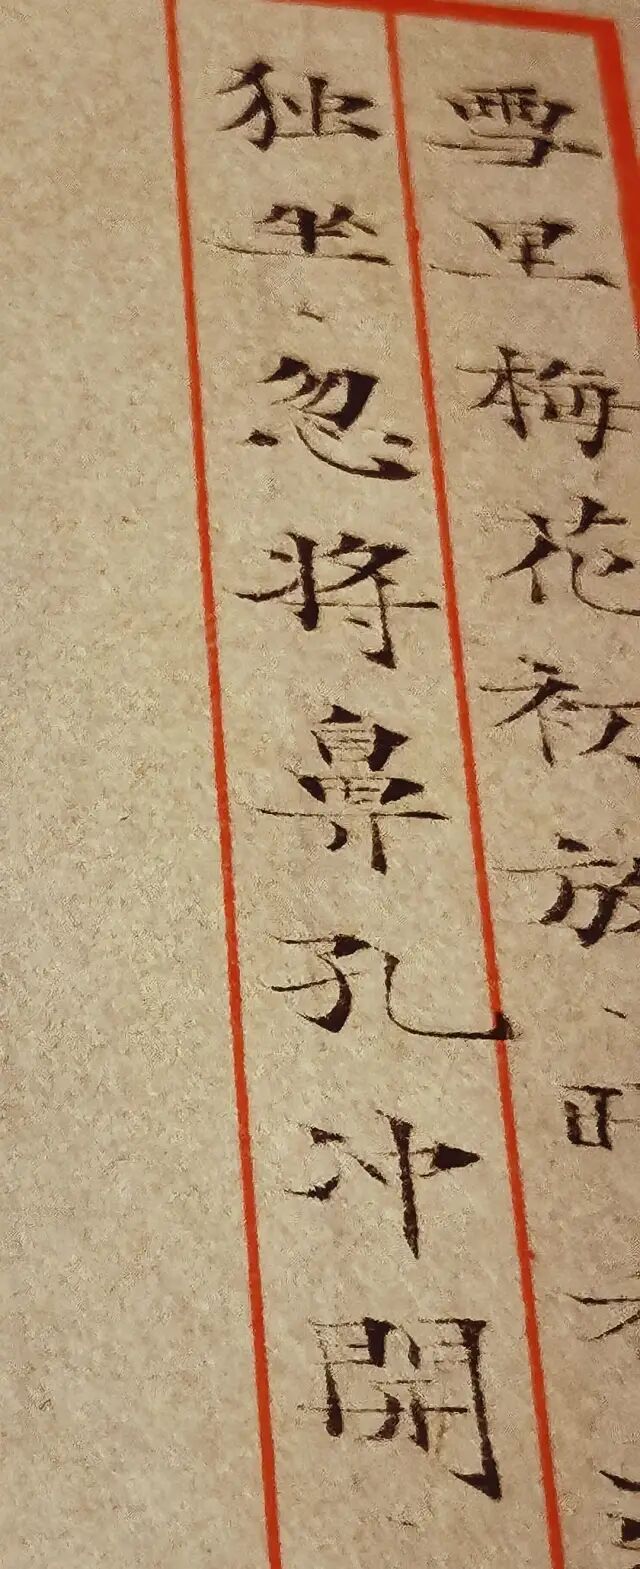 雪里梅花初放
独坐忽将鼻孔冲開